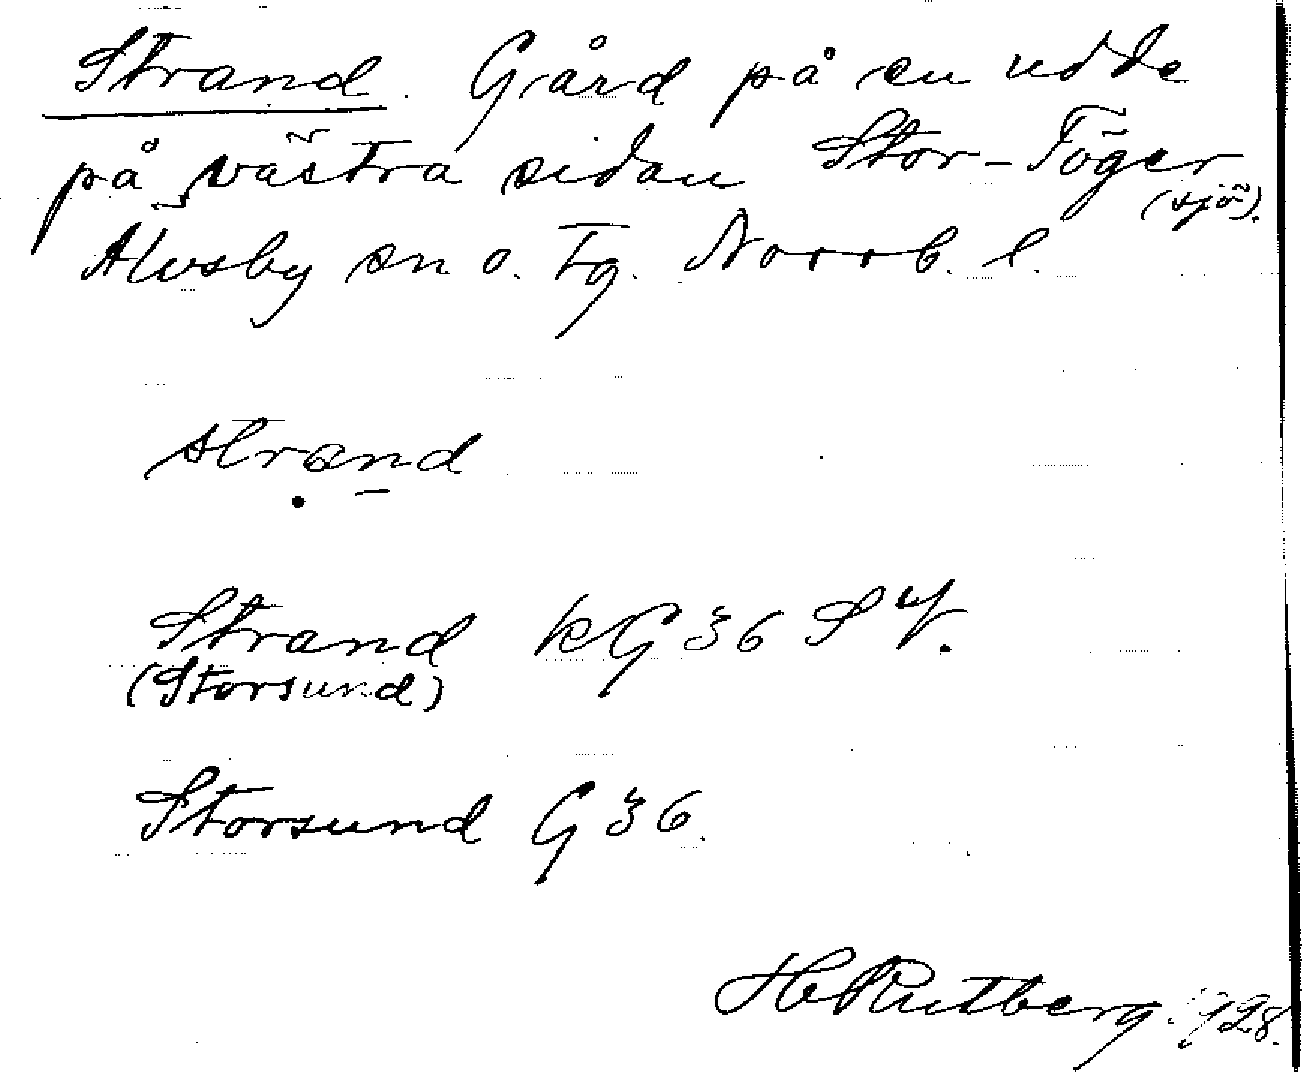 Strand. Gård på en udde
på västra sidan Stor-Töger
(sjö).
Älvsby sn o. tg. Norrb. l.
strand
Strand kG 36 S V.
(Storsund)
Storsund G 36.
H Rutberg. 1928.